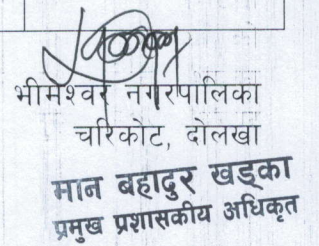 भीमेश्वर नगरपालिका
चरिकोट, दोलखा
मान बहादुर खड्का
प्रमुख प्रशासकीय अधिकृत